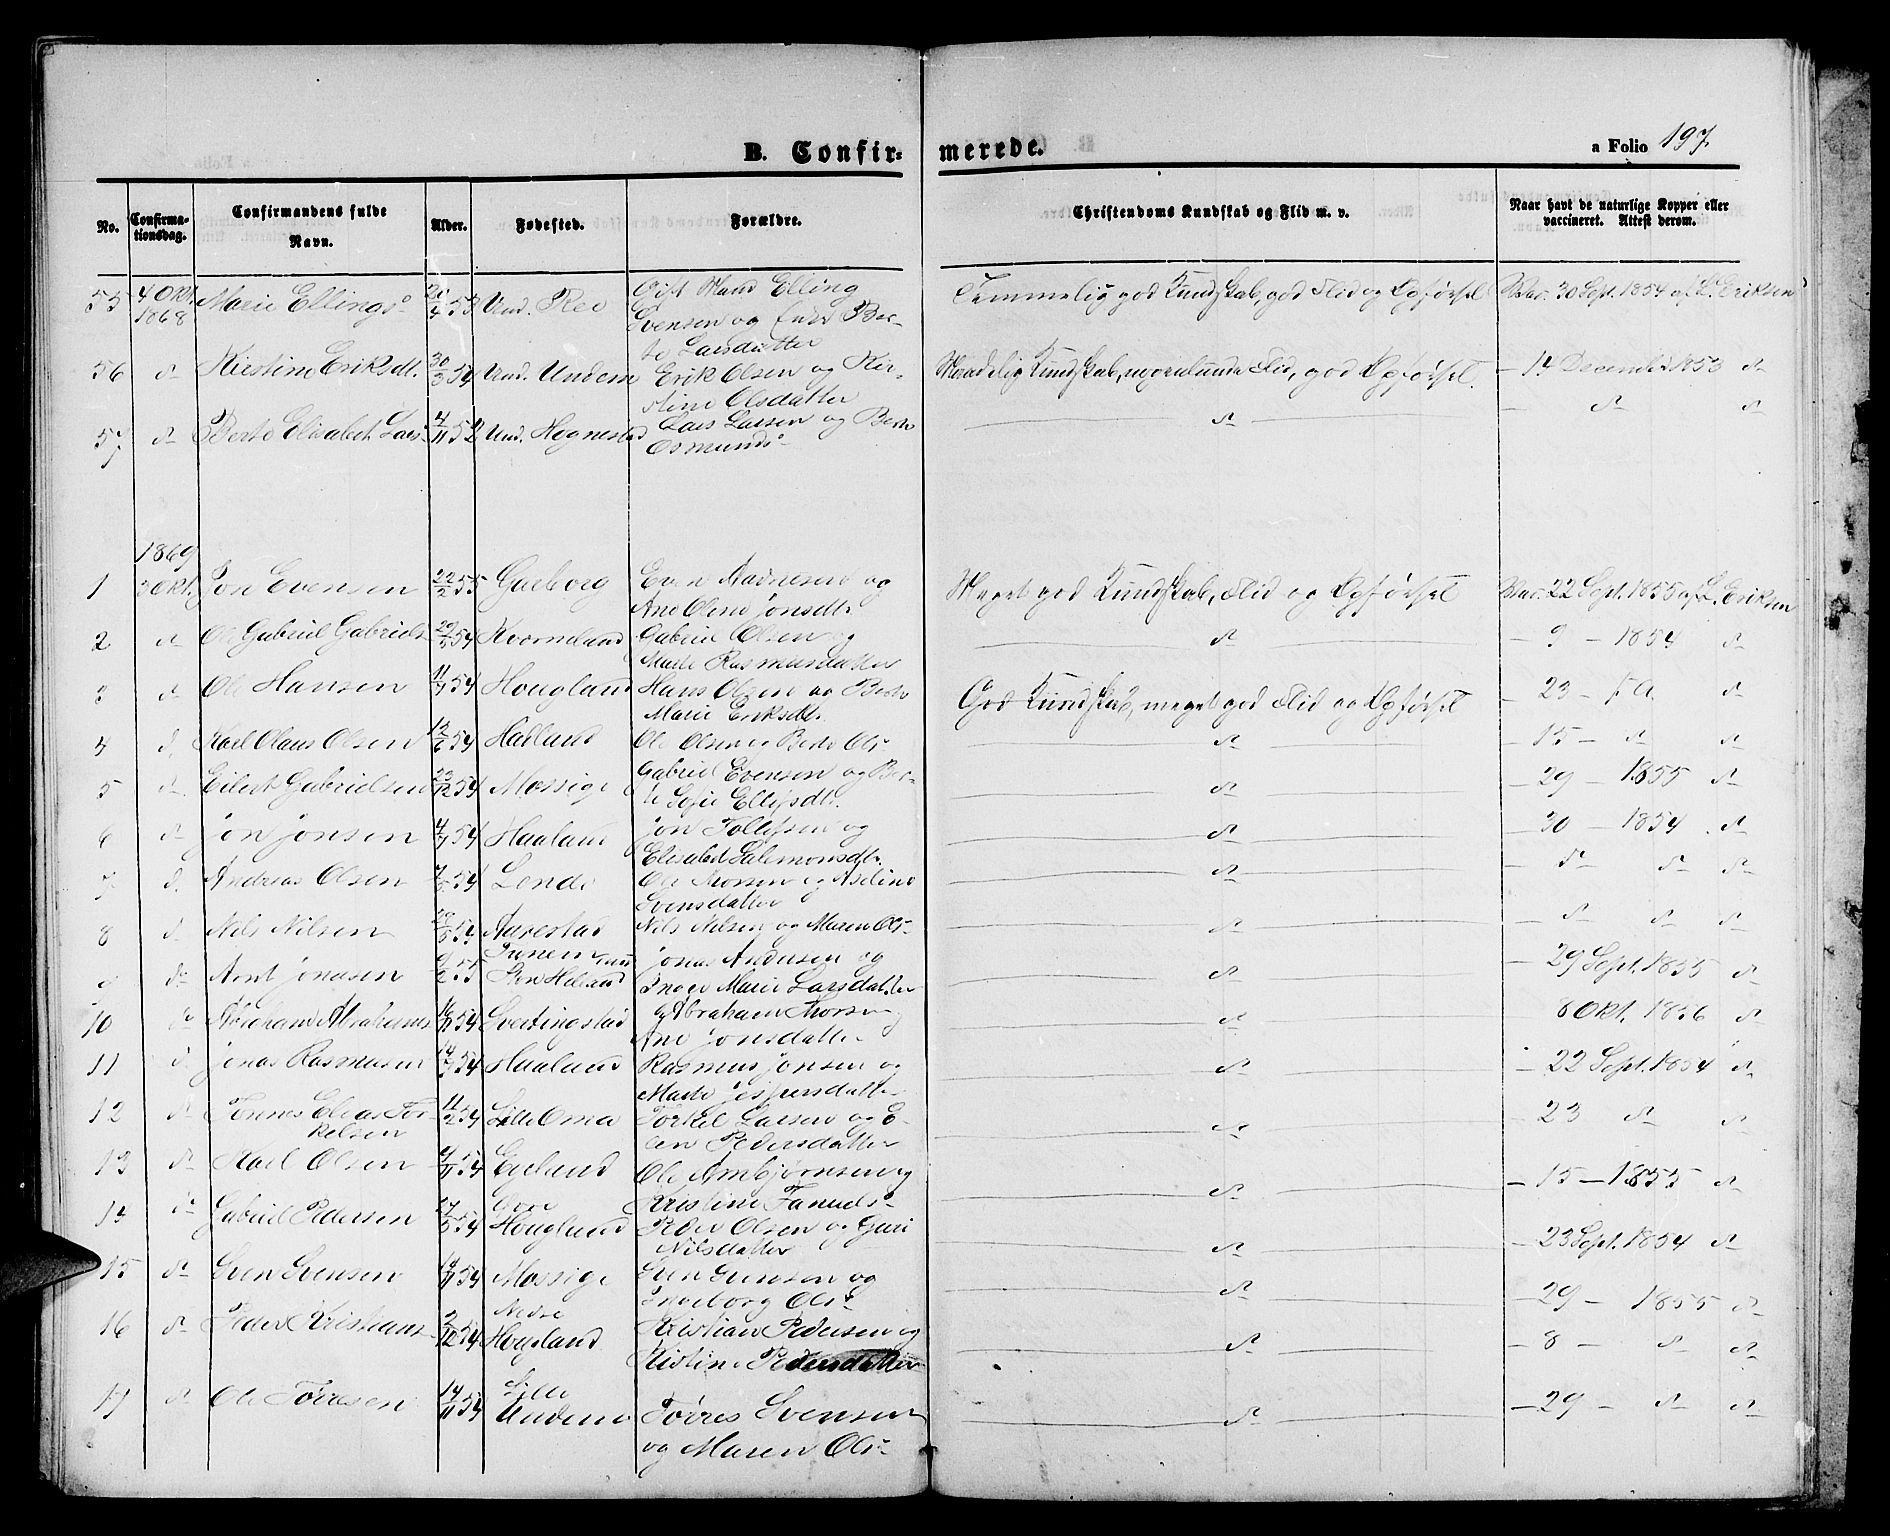 B. Confir-
merede.
a Folio 197.
No.
Confirma-
tionsdag.
Confirmandens fulde
Navn.
Alder.
Fødested.
Forældre.
Christendoms Kundskab og Flid m. v.
Naar havt de naturlige Kopper eller
vaccineret. Attest derom.
55 4 Okt. 1868 Marie Ellings° 53 Und. Ree
Gift Mand Elling
Evensen og Ber-
te Larsdatter
Temmelig god Kundskab, god Flid og Opførsel Vac. 30 Sept. 1854 af L. Eriksen
56 d° Kirstine Eriksdt. 30/3 54 Und. Undem Erik Olsen og Kir-
stine Olsdatter
Maadelig Kundskab, Flid, god Opførsel. – 14 December 1853 d°
57 d° Berte Elisabet Lars° 4/11 52 Und. Hognestad Lars Larsen og Berte
Osmunds°
d° – d° d°
1869
1 3 Okt. Jon Evensen 22/2 55 Garborg Even Aadnesen og
Ane Oline Jonsdt.
Meget god Kundskab, Flid og Opførsel Vac. 22 Sept. 1855 af L. Eriksen
2 d° Ole Gabriel Gabriels° 54 Kverneland Gabriel Olsen og
Marte Rasmusdatter
d° – 9 – 1854 d°
3 d° Ole Hansen 54 Hougland Hans Olsen og Berte
Marie Eriksdt.
God Kundskab, meget god Flid og Opførsel – 23 – d°
4 d° Karl Olaus Olsen 12/6 54 Haaland Ole Olsen og Berte Ols°
d° – 15 – d° d°
5 d° Eilert Gabrielsen 23/12 54 Mossige Gabriel Evensen og Ber-
te Sofie Ellifsdt.
d° – 29 – 1855 d°
6 d° Jon Jonsen 54 Haaland Jon Tollefsen og
Elisabet Salomonsdt.
d° – 30 – 1854 d°
7 d° Andreas Olsen 54 Lende Ole Thorsen og Aseline
Svensdatter
d° – d° d° d°
8 d° Nils Nilsen 54 Aarestad Nils Nilsen og Maren Ols°
d° d° d° d°
d° Arnt Jonasen 9/2 55 Jonas Andersen og
Inger Marie Larsdatter
d° – 29 Sept. 1855 d°
10 d° Abraham Abrahams° 54 Svertingstad Abraham Thorsen
Ane Jonsdatter
d° 8 Okt. 1856 d°
11 d° Jonas Rasmusen 54 Haaland Rasmus Jonsen og
Marte Jespersdatter
d° – 22 Sept. 1854 d°
12 d° Tønnes Elias Tor-
kelsen
11/2 54 Lille Oma Torkel Larsen og E-
len Pedersdatter
d° – 23 d° d°
13 d° Karl Olsen 54 Eieland Ole Arnbjørnsen og
Kristine Fanuels°
d° – 15 – 1855 d°
14 d° Gabriel Pedersen 54 Øvre
Hougland Peder Olsen og Guri
Nilsdatter
d° – 23 Sept. 1854 d°
15 d° Sven Svensen 54 Mossige Sven Svensen og
Ingeborg Ols°
d° – 29 – 1855 d°
16 d° Peder Kristians° 54 Nedre
Hougland Kristian Pedersen og
Kistine Pedersdatter
d° – 8 – d° d°
17 d° Ole Tørresen 14/11 54 Lille
Undem Tørres Svensen
og Maren Ols°
d° – 29 – d° d°